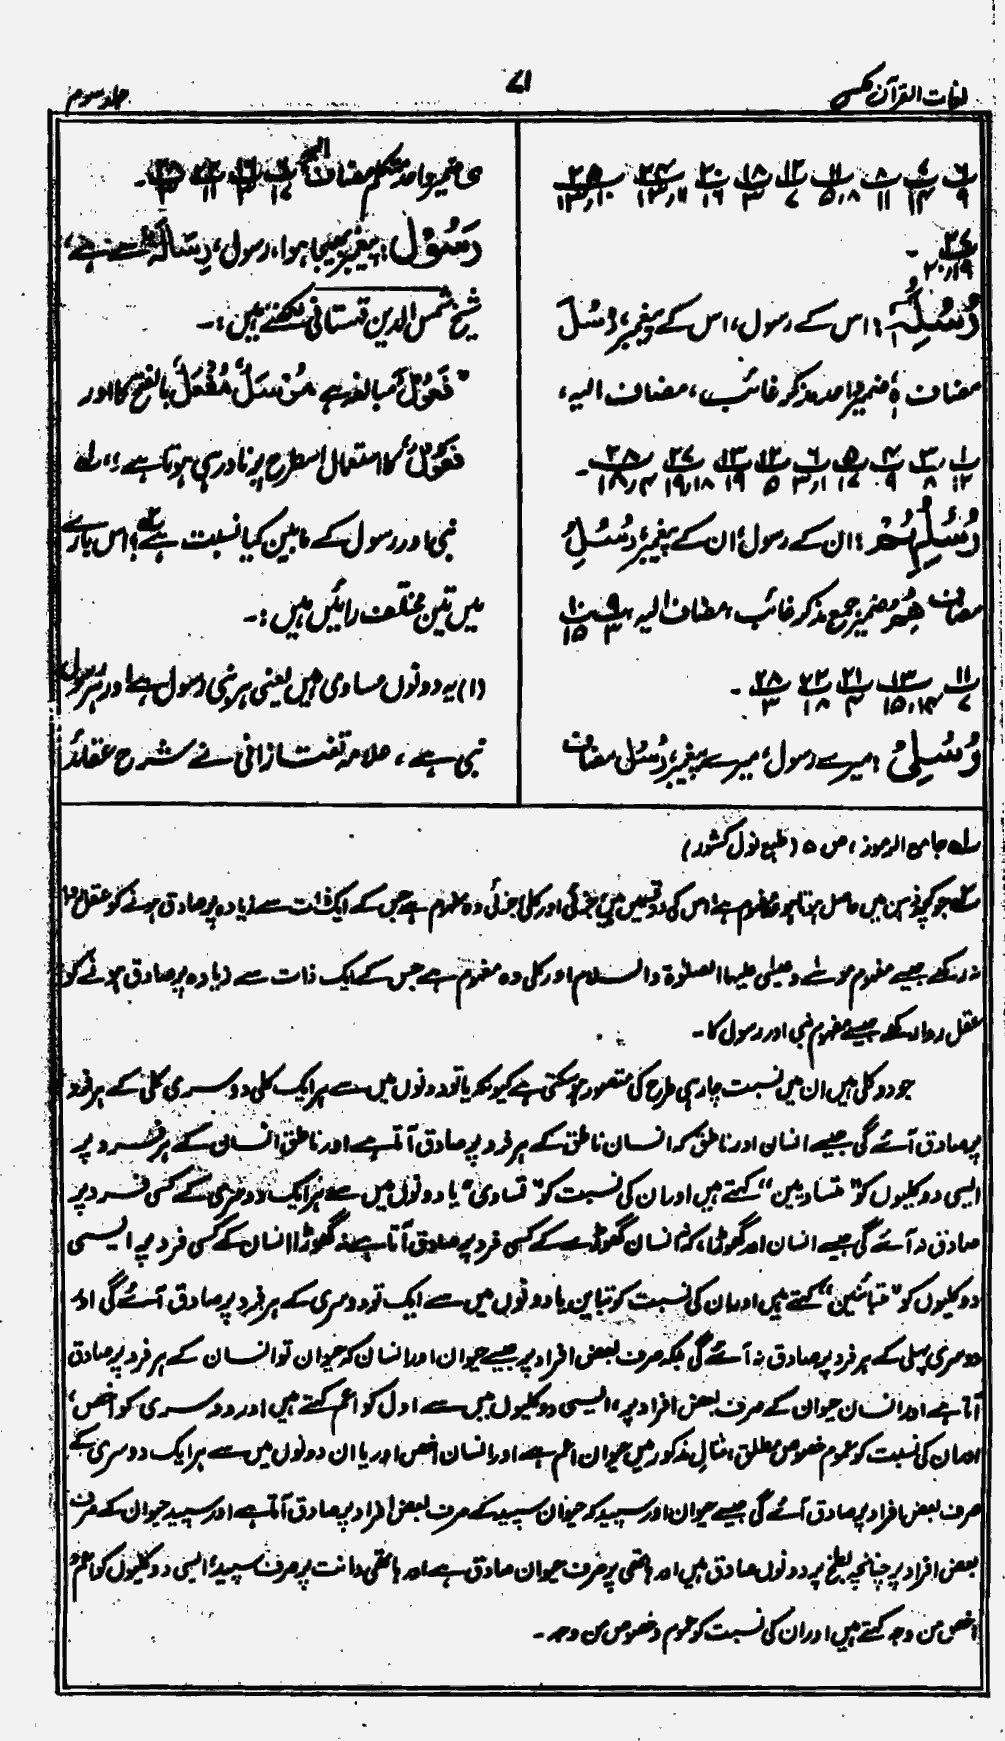 لغات القرآن
۷۱
جلد سوم
۶/۹ ۸/۱۱ ۱۱/۵،۸ ۱۳/۷ ۱۸/۳ ۲۰/۱۶ ۲۴/۱۳،۱۱
۲۷/۲۰،۱۹ ـ
رُسُلِہٖ : اس کے رسول، اس کے پیغمبر، رُسُل
مضاف ہٖ ضمیر واحد مذکر غائب، مضاف الیہ،
۱/۱۲ ۳/۸ ۴/۹ ۵/۱۷ ۶/۳،۱ ۱۲/۵ ۱۳/۱۹ ۲۷/۱۹،۱۸ ۲۸/۱۸،۴ ـ
رُسُلُہُمْ : ان کے رسول، ان کے پیغمبر، رُسُل
مضاف ھُمْ ضمیر جمع مذکر غائب، مضاف الیہ، ۹/۳ ۱۰/۱۵
۱۱/۷ ۱۳/۱۵،۱۴ ۲۱/۴ ۲۲/۱۸ ۲۸/۳ ـ
رُسُلِیْ : میرے رسول، میرے پیغمبر، رُسُل مضاف
ی ضمیر واحد متکلم مضاف الیہ
رَسُوْل : پیغمبر بھیجا ہوا، رسول، رِسَالَۃٌ سے ہے،
شیخ شمس الدین قہستانی لکھتے ہیں :۔
" فَعُوْلٌ مبالغہ ہے مُرْسَلٌ مُفْعَلٌ بالفتح کا اور
فَعُوْلٌ کا استعمال اسطرح پر نادر ہی ہوتا ہے "، لہ
نبی اور رسول کے مابین کیا نسبت ہے ؟ اس بارے
میں تین مختلف رائیں ہیں :۔
(۱) یہ دونوں مساوی ہیں یعنی ہر نبی رسول ہے اور ہر رسول
نبی ہے، علامہ تفتازانی نے شرح عقائد
لہ جامع الرموز، ص ۵ (طبع نول کشور)
جو کچھ ذہن میں حاصل ہوتا ہو مفہوم ہے، اس کی دو قسمیں ہیں جزئی اور کلی، جزئی وہ مفہوم ہے جس کے ایک ذات سے زیادہ پر صادق ہونے کو عقل روا
نہ رکھے جیسے مفہوم موسٰے و عیسٰی علیہما الصلوٰۃ والسلام اور کلی وہ مفہوم ہے جس کے ایک ذات سے زیادہ پر صادق ہونے کو
عقل روا رکھے جیسے مفہوم نبی اور رسول کا۔
جو دو کلی ہیں ان میں نسبت چار ہی طرح کی متصور ہو سکتی ہے کیونکہ یا تو دونوں میں سے ہر ایک کلی دوسری کلی کے ہر فرد
پر صادق آئے گی جیسے انسان اور ناطق کہ انسان ناطق کے ہر فرد پر صادق آتا ہے اور ناطق انسان کے ہر فرد پر
ایسی دو کلیوں کو "متساویین" کہتے ہیں اور ان کی نسبت کو "تساوی" یا دونوں میں سے ہر ایک دوسری کے کسی فرد پر
صادق نہ آئے گی جیسے انسان اور گھوڑا، کہ نہ انسان گھوڑے کے کسی فرد پر صادق آتا ہے نہ گھوڑا انسان کے کسی فرد پر ایسی
دو کلیوں کو "متبائنین" کہتے ہیں اور ان کی نسبت کو تباین یا دونوں میں سے ایک تو دوسری کے ہر فرد پر صادق آئے گی اور
دوسری پہلی کے ہر فرد پر صادق نہ آئے گی بلکہ صرف بعض افراد پر جیسے حیوان اور انسان کہ حیوان تو انسان کے ہر فرد پر صادق
آتا ہے اور انسان حیوان کے صرف بعض افراد پر، ایسی دو کلیوں میں سے اول کو اعم کہتے ہیں اور دوسری کو اخص،
اور ان کی نسبت کو عموم خصوص مطلق، مثال مذکور میں حیوان اعم ہے اور انسان اخص اور یا ان دونوں میں سے ہر ایک دوسری کے
صرف بعض افراد پر صادق آئے گی جیسے حیوان اور سپید کہ حیوان سپید کے صرف بعض افراد پر صادق آتا ہے اور سپید حیوان کے صرف
بعض افراد پر چنانچہ بطخ پر دونوں صادق ہیں اور ہاتھی پر صرف حیوان صادق ہے اور ہاتھی دانت پر صرف سپید، ایسی دو کلیوں کو اعم
اخص من وجہ کہتے ہیں اور ان کی نسبت کو عموم و خصوص من وجہ۔